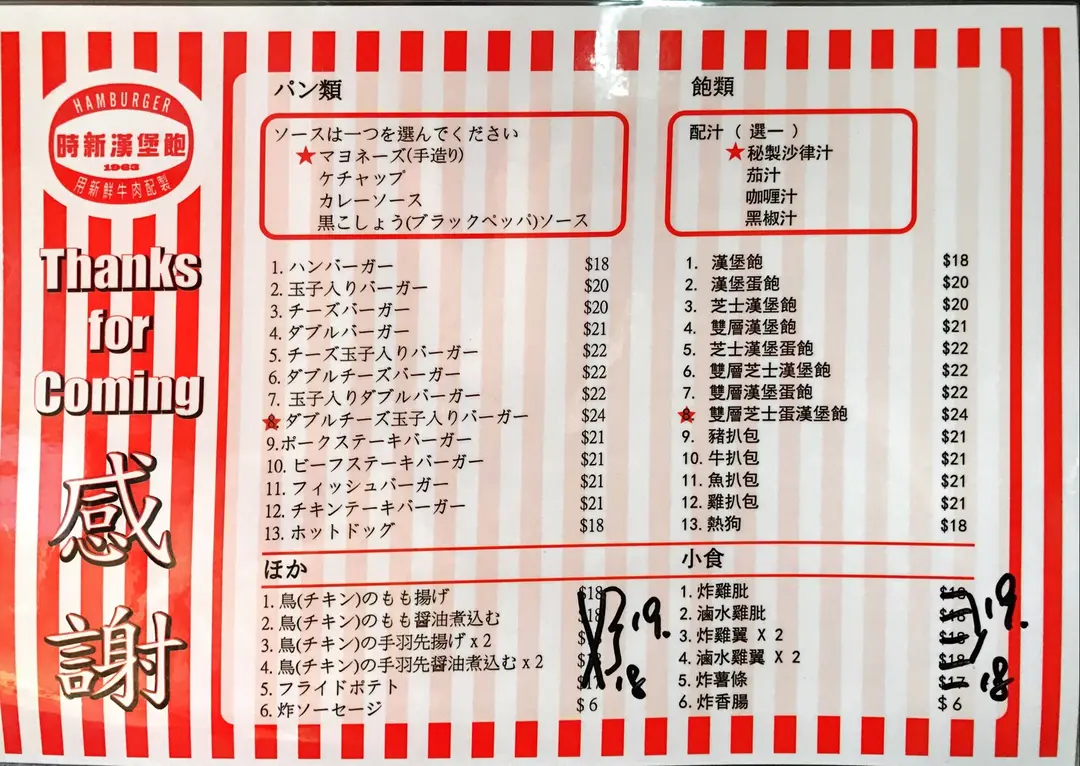 HAMBURGER
時新漢堡飽
1963
用新鮮牛肉配製
Thanks
for
Coming
感
謝
パン類
ソースは一つを選んでください
★マヨネーズ(手造り)
ケチャップ
カレーソース
黒こしょう(ブラックペッパ)ソース
1. ハンバーガー $18
2. 玉子入りバーガー $20
3. チーズバーガー $20
4. ダブルバーガー $21
5. チーズ玉子入りバーガー $22
6. ダブルチーズバーガー $22
7. 玉子入りダブルバーガー $22
8. ダブルチーズ玉子入りバーガー $24
9.ポークステーキバーガー $21
10. ビーフステーキバーガー $21
11. フィッシュバーガー $21
12. チキンテーキバーガー $21
13. ホットドッグ $18
ほか
1. 鳥(チキン)のもも揚げ $18
2. 鳥(チキン)のもも醤油煮込む $18
3. 鳥(チキン)の手羽先揚げ x 2
4. 鳥(チキン)の手羽先醤油煮込む x 2
19.
5. フライドポテト
18
6. 炸ソーセージ $ 6
飽類
配汁（選一）
★秘製沙律汁
茄汁
咖喱汁
黑椒汁
1. 漢堡飽 $18
2. 漢堡蛋飽 $20
3. 芝士漢堡飽 $20
4. 雙層漢堡飽 $21
5. 芝士漢堡蛋飽 $22
6. 雙層芝士漢堡飽 $22
7. 雙層漢堡蛋飽 $22
8. 雙層芝士蛋漢堡飽 $24
9. 豬扒包 $21
10. 牛扒包 $21
11. 魚扒包 $21
12. 雞扒包 $21
13. 熱狗 $18
小食
1. 炸雞肶 $18
2. 滷水雞肶 $18
3. 炸雞翼 X 2 $18
4. 滷水雞翼 X 2 $18
19.
5. 炸薯條 $17
18
6. 炸香腸 $ 6